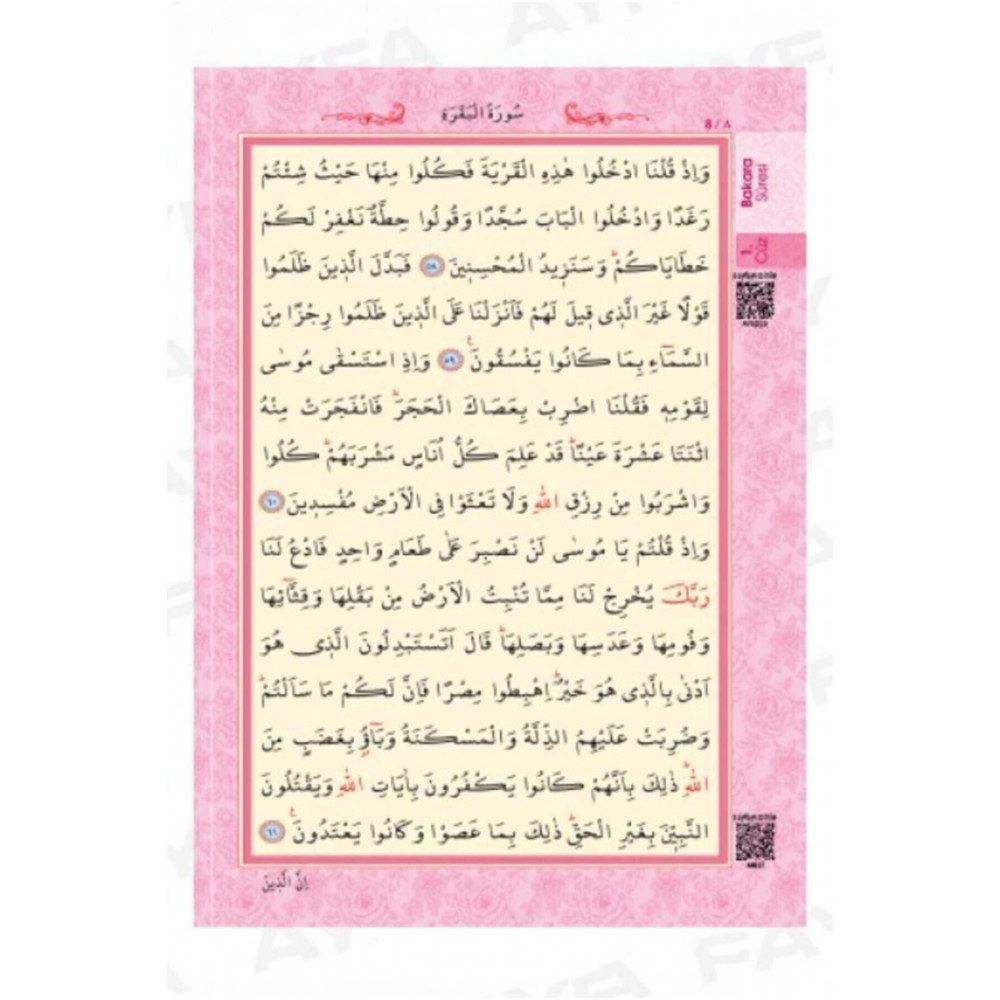 سُورَةُ الْبَقَرَةِ
8 / ٨
وَاِذْ قُلْنَا ادْخُلُوا هٰذِهِ الْقَرْيَةَ فَكُلُوا مِنْهَا حَيْثُ شِئْتُمْ
رَغَدًا وَادْخُلُوا الْبَابَ سُجَّدًا وَقُولُوا حِطَّةٌ نَغْفِرْ لَكُمْ
خَطَايَاكُمْۜ وَسَنَزٖيدُ الْمُحْسِنٖينَ ٥٨ فَبَدَّلَ الَّذٖينَ ظَلَمُوا
قَوْلًا غَيْرَ الَّذٖى قٖيلَ لَهُمْ فَاَنْزَلْنَا عَلَى الَّذٖينَ ظَلَمُوا رِجْزًا مِنَ
السَّمَٓاءِ بِمَا كَانُوا يَفْسُقُونَ ٥٩ وَاِذِ اسْتَسْقٰى مُوسٰى
لِقَوْمِهٖ فَقُلْنَا اضْرِبْ بِعَصَاكَ الْحَجَرَۜ فَانْفَجَرَتْ مِنْهُ
اثْنَتَا عَشْرَةَ عَيْنًاۜ قَدْ عَلِمَ كُلُّ اُنَاسٍ مَشْرَبَهُمْۜ كُلُوا
وَاشْرَبُوا مِنْ رِزْقِ اللّٰهِ وَلَا تَعْثَوْا فِى الْاَرْضِ مُفْسِدٖينَ ٦٠
وَاِذْ قُلْتُمْ يَا مُوسٰى لَنْ نَصْبِرَ عَلٰى طَعَامٍ وَاحِدٍ فَادْعُ لَنَا
رَبَّكَ يُخْرِجْ لَنَا مِمَّا تُنْبِتُ الْاَرْضُ مِنْ بَقْلِهَا وَقِثَّٓائِهَا
وَفُومِهَا وَعَدَسِهَا وَبَصَلِهَاۜ قَالَ اَتَسْتَبْدِلُونَ الَّذٖى هُوَ
اَدْنٰى بِالَّذٖى هُوَ خَيْرٌۜ اِهْبِطُوا مِصْرًا فَاِنَّ لَكُمْ مَا سَاَلْتُمْۜ
وَضُرِبَتْ عَلَيْهِمُ الذِّلَّةُ وَالْمَسْكَنَةُ وَبَٓاؤُ۫ بِغَضَبٍ مِنَ
اللّٰهِۜ ذٰلِكَ بِاَنَّهُمْ كَانُوا يَكْفُرُونَ بِاٰيَاتِ اللّٰهِ وَيَقْتُلُونَ
النَّبِيّٖنَ بِغَيْرِ الْحَقِّۜ ذٰلِكَ بِمَا عَصَوْا وَكَانُوا يَعْتَدُونَ ٦١
اِنَّ الَّذٖينَ
Bakara
Sûresi
1.
Cüz
AYFA